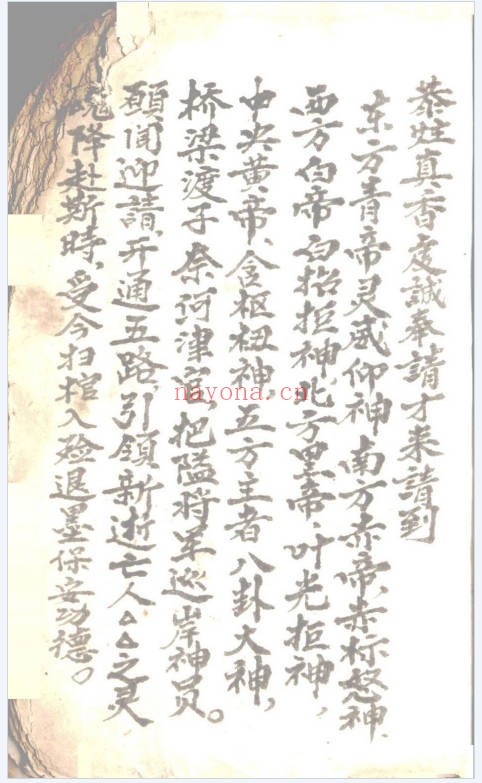 恭炷真香虔誠奉請才来請到
东方青帝灵威仰神南方赤帝、赤标怒神、
西方白帝白招拒神北方黑帝、叶光拒神，
中央黄帝、含枢杻神、五方主者八卦大神，
桥梁渡子奈河津宫、把隘将军巡岸神员。
願闻迎請、开通五路引領新逝亡人△△之灵
魂降赴斯時，受今扫棺入殓退墨保安功德。
nayona.cn